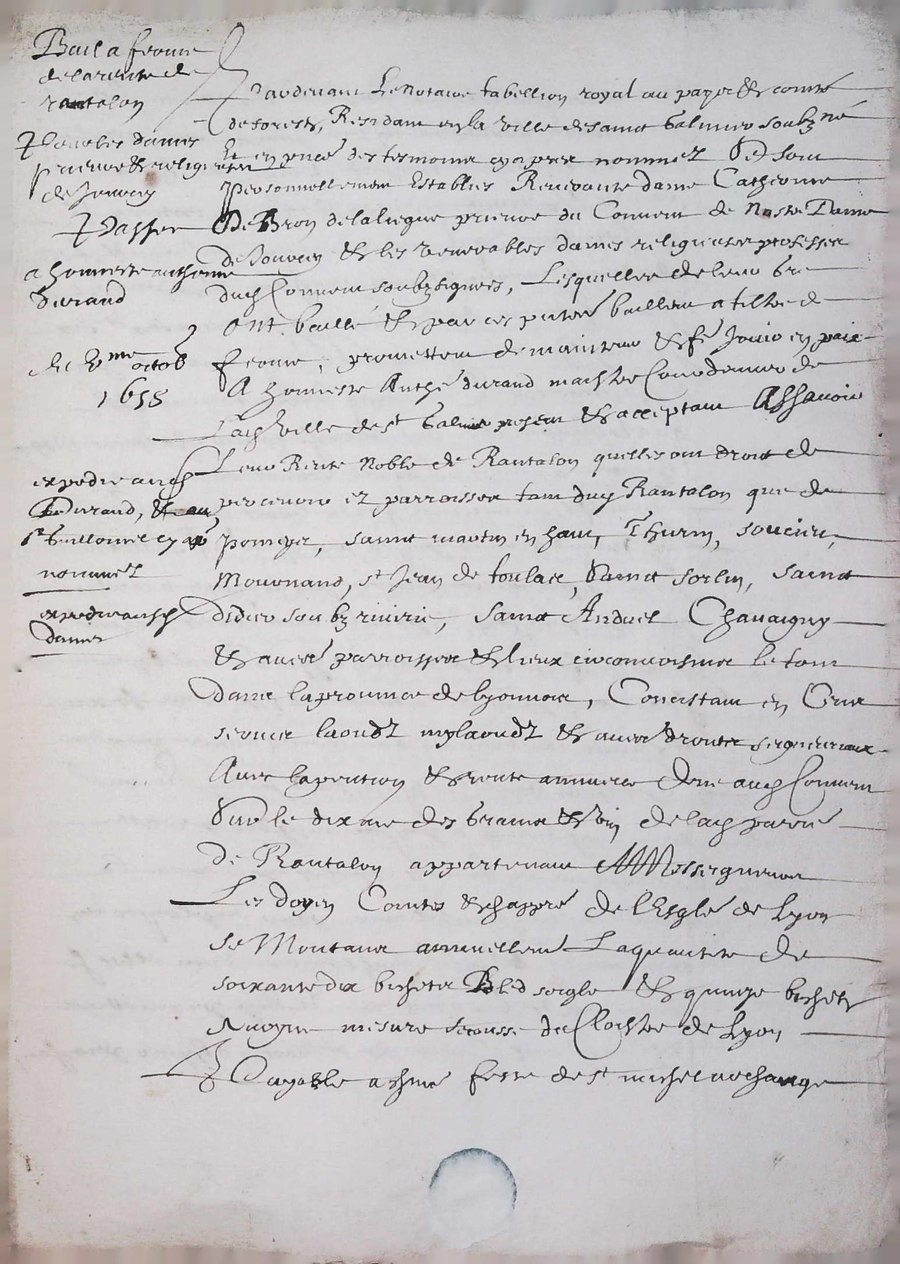 Bail a ferme
de la rente de
rantalon
Nobles dames
prieure & religieuses
de Jourcey
Passer
a honneste anthoine
durand
du octob
1655
expedie aud
durand, &
nommez
expedie ausd
dames
Pardevant Le Notaire tabellion royal au pays & comté
de forestz, Residant en la ville de sainct Galmier soubzné
Et en pnce des tesmoins cy apres nommez se sont
personnellement Establies Reverante dame Catherine
De Bron de la liegue prieure du Convent de Nostre Dame
de Jourcey & les venerables dames religieuses professes
dud Convent soubzsignees, Lesquelles de leur gre
Ont baillé & par ces pntes baillent a tiltre de
ferme, promettent de maintenir & fe Jouir en paix
A honneste Anthe durand mar Courdonnier de
Lad Ville de st Galmier present & acceptant Assavoir
Leur Rente Noble de Rantalon quelles ont droit de
percevoir ez parroisses tant dud Rantalon que de
pomeys, sainct martin en haut, Thurin, soucieu,
Mournand, st Jean de toulas, Sainct sorlin, sainct
didier soubz riverie, sainct Anduel Chavaigny
& autres parroisses & lieux circonvoisins le tout
dans la province de lyonnois, Consistant en Cens
servis laoudz mylaoudz & autres droitz seigneuriaux
Avec la pention & rente annuelle deue aud Convent
Sur le dixme des grains & vin de lad parrse
De Rantalon appartenant A Messeigneurs
Les doyen Comtes & chappre de l'Esglé de Lyon
Se Montant annuellemt La quantite de
soixante dix bichetz Bled seigle & quinze bichetz
Avoyne mesure du Cloistre de Lyon
Payable a chne feste de st michel archange